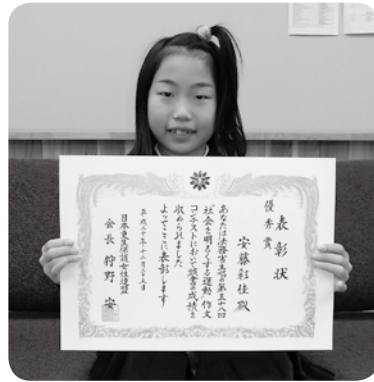 表彰状
優秀賞
安藤彩佳殿
あなたは法務省主唱の第五十八回
"社会を明るくする運動"作文
コンテストにおいて頭書の成績を
収められました
よってここに表彰します
平成二十年十二月二十五日
日本更生保護女性連盟
会長 狩野 安